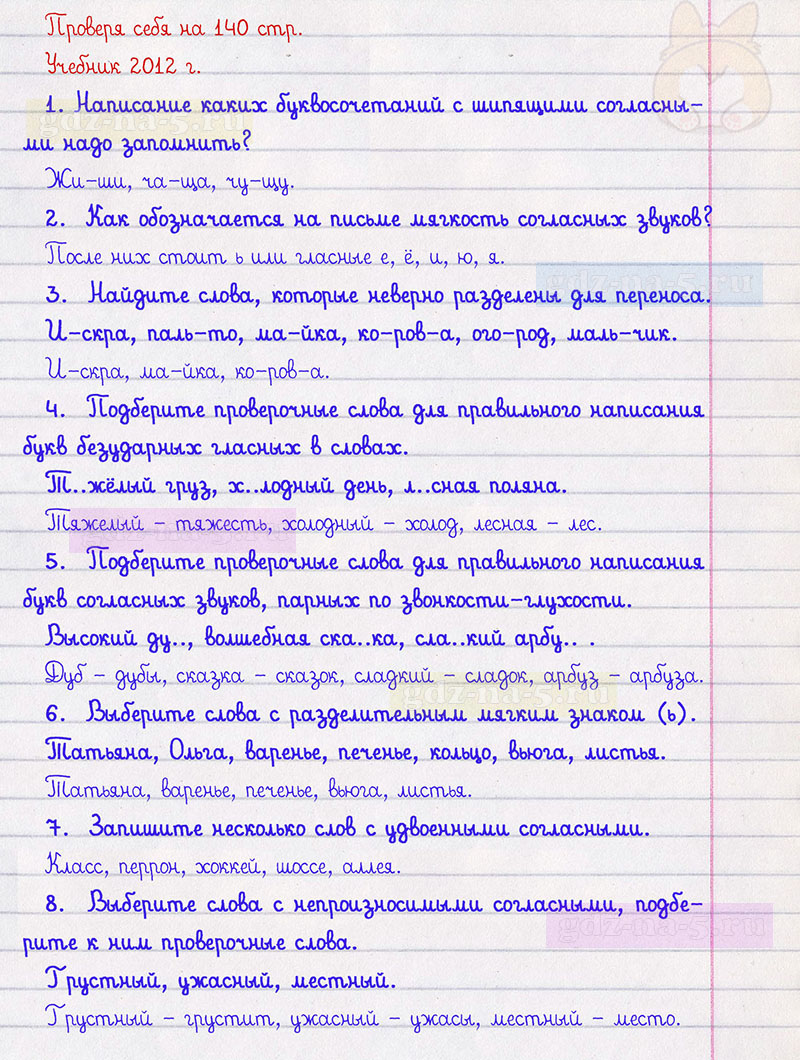 Проверя себя на 140 стр.
Учебник 2012 г.
1. Написание каких буквосочетаний с шипящими согласны-
gdz-na-5.ru
ми надо запомнить?
Жи-ши, ча-ща, чу-щу.
2. Как обозначается на письме мягкость согласных звуков?
После них стоит ь или гласные е, ё, и, ю, я.
gdz-na-5.ru
3. Найдите слова, которые неверно разделены для переноса.
И-скра, паль-то, ма-йка, ко-ров-а, ого-род, маль-чик.
И-скра, ма-йка, ко-ров-а.
4. Подберите проверочные слова для правильного написания
букв безударных гласных в словах.
Т..жёлый груз, х..лодный день, л..сная поляна.
Тяжелый - тяжесть, холодный - холод, лесная - лес.
gdz-na-5.ru
5. Подберите проверочные слова для правильного написания
букв согласных звуков, парных по звонкости-глухости.
Высокий ду.., волшебная ска..ка, сла..кий арбу.. .
Дуб - дубы, сказка - сказок, сладкий - сладок, арбуз - арбуза.
gdz-na-5.ru
6. Выберите слова с разделительным мягким знаком (ь).
Татьяна, Ольга, варенье, печенье, кольцо, вьюга, листья.
Татьяна, варенье, печенье, вьюга, листья.
7. Запишите несколько слов с удвоенными согласными.
Класс, перрон, хоккей, шоссе, аллея.
8. Выберите слова с непроизносимыми согласными, подбе-
gdz-na-5.ru
рите к ним проверочные слова.
Грустный, ужасный, местный.
Грустный - грустит, ужасный - ужасы, местный - место.